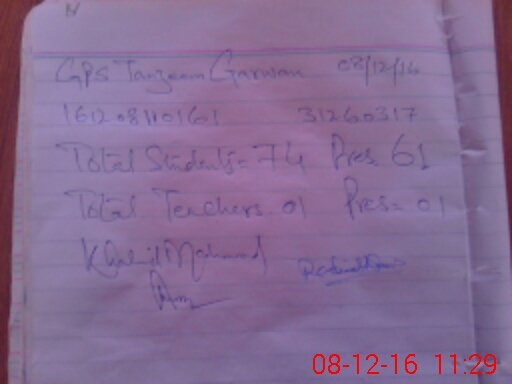 GPS Tanzeem Garwan 08/12/16
161208110161 31260317
Total Students = 74 Pres 61
Total Teachers 01 Pres = 01
Khalid Mehmood
08-12-16 11:29